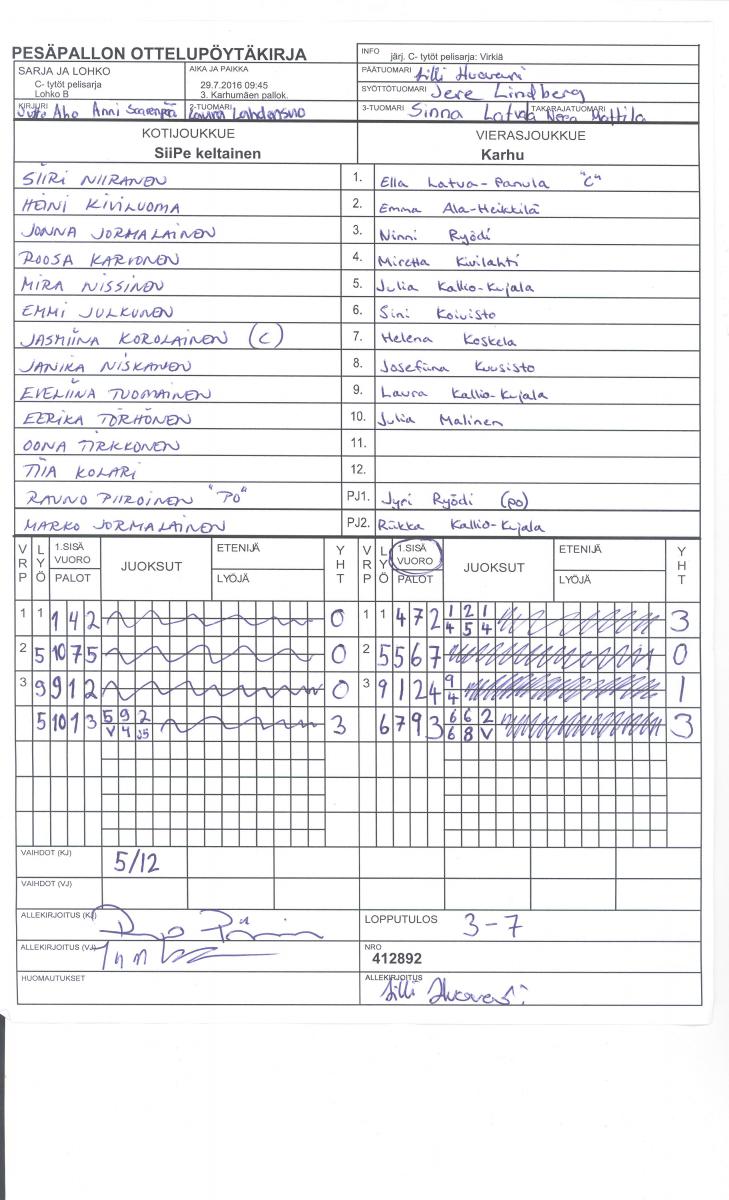 PESÄPALLON OTTELUPÖYTÄKIRJA
INFO järj. C- tytöt pelisarja: Virkiä
SARJA JA LOHKO
C- tytöt pelisarja
Lohko B
AIKA JA PAIKKA
29.7.2016 09:45
3. Karhumäen pallok.
PÄÄTUOMARI
SYÖTTÖTUOMARI Jere Lindberg
KIRJURI Jutta Aho Anni Saarenpää
2-TUOMARI Laura Lahdensuo
3-TUOMARI Sinna Latva
TAKARAJATUOMARI Neea Mattila
KOTIJOUKKUE
SiiPe keltainen
VIERASJOUKKUE
Karhu
SIIRI NIIRANEN 1. Ella Latva-Panula "C"
HEINI KIVILUOMA 2. Emma Ala-Heikkilä
JONNA JORMALAINEN 3. Ninni Ryödi
ROOSA KARVONEN 4. Miretta Kivilahti
MIRA NISSINEN 5. Julia Kallio-Kujala
EMMI JULKUNEN 6. Sini Koivisto
JASMIINA KOROLAINEN (C) 7. Helena Koskela
JANIKA NISKANEN 8. Josefiina Kuusisto
EVELIINA TUOMAINEN 9. Laura Kallio-Kujala
EERIKA TÖRHÖNEN 10. Julia Malinen
OONA TIRKKONEN 11.
TIIA KOLARI 12.
RAUNO PIIROINEN "PO" PJ1. Jyri Ryödi (po)
MARKO JORMALAINEN PJ2. Riikka Kallio-Kujala
VRP LYÖ 1.SISÄ VUORO PALOT JUOKSUT ETENIJÄ LYÖJÄ YHT VRP LYÖ 1.SISÄ VUORO PALOT JUOKSUT ETENIJÄ LYÖJÄ YHT
1 1 1 4 2 0 1 1 4 7 2 1 2 1 3
4 5 4
2 5 10 7 5 0 2 5 5 6 7 0
3 9 9 1 2 0 3 9 1 2 4 9 1
4
5 10 1 3 5 9 2 3 6 7 9 3 6 6 2 3
V 4 J5 6 8 V
VAIHDOT (KJ) 5/12
VAIHDOT (VJ)
ALLEKIRJOITUS (KJ)
LOPPUTULOS 3-7
ALLEKIRJOITUS (VJ)
NRO
412892
HUOMAUTUKSET
ALLEKIRJOITUS